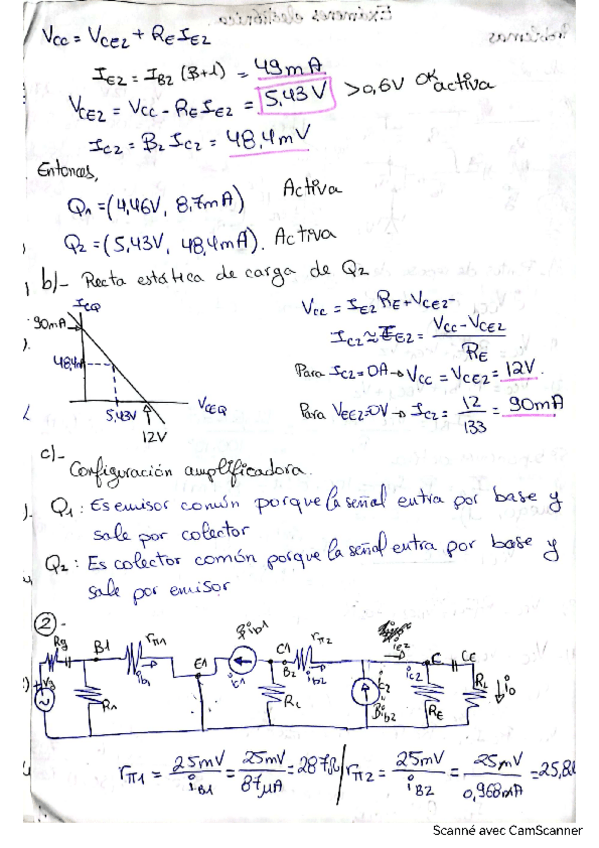 Vcc = VCE2 + RE IE2
IE2 = IB2 (B+1) = 49mA
VCE2 = Vcc - RE IE2 = 5,43V >0,6V OK activa
IC2 = B2 IC2 = 48,4mV
Entonces,
Q1 = (4,46V, 8,7mA) Activa
Q2 = (5,43V, 48,4mA). Activa
b)- Recta estática de carga de Q2
ICQ
90mA
48,4
5,43V
12V
VCEQ
Vcc = IE2 RE + VCE2
IC2 ≈ IE2 = Vcc - VCE2 / RE
Para IC2 = 0A → Vcc = VCE2 = 12V.
Para VEE2 = 0V → IC2 = 12/133 = 90mA
c)-
Configuración amplificadora.
Q1: Es emisor común porque la señal entra por base y
sale por colector
Q2: Es colector común porque la señal entra por base y
sale por emisor
2 -
Rg B1 rπ1 ib1 E1 ic1 C1 B2 rπ2 ib2 ic2 C CE
R1 RL RE RL io
rπ1 = 25mV / iB1 = 25mV / 87μA = 287Ω / rπ2 = 25mV / iB2 = 25mV / 0,968mA = 25,8
Scanné avec CamScanner